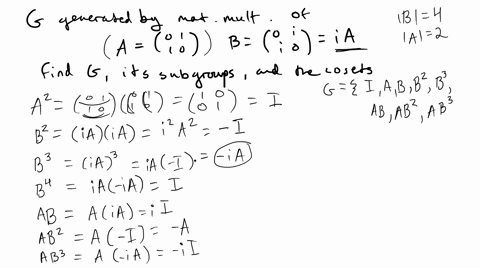 G generated by mat. mult. of
(A = (0 1 1 0)) B = (0 i i 0) = iA
|B| = 4
|A| = 2
find G, its subgroups, and the cosets
G = { I, A, B, B², B³,
AB, AB², AB³
A² = (0 1 1 0)(0 1 1 0) = (1 0 0 1) = I
B² = (iA)(iA) = i²A² = -I
B³ = (iA)³ = iA(-I) = -iA
B⁴ = iA(-iA) = I
AB = A(iA) = iI
AB² = A(-I) = -A
AB³ = A(-iA) = -iI